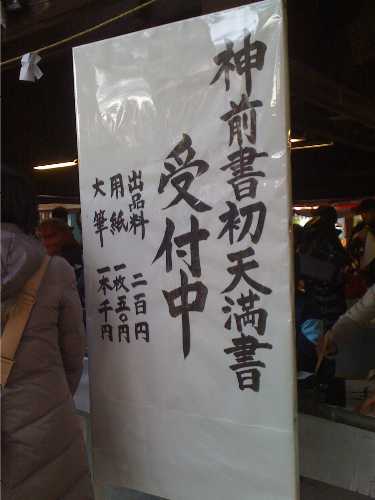 神前書初天満書
受付中
出品料 二百円
用紙 一枚五〇円
大筆 一本千円